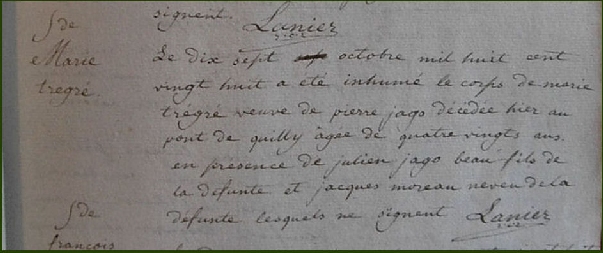 signent. Lanier
S de
Marie
trégré
Le dix sept octobre mil huit cent
vingt huit a été inhumé le corps de marie
trégré veuve de pierre jago décédée hier au
pont de quilly âgée de quatre vingts ans.
en présence de julien jago beau fils de
la défunte et jacques moreau neveu de la
défunte lesquels ne signent Lanier
S de
françois